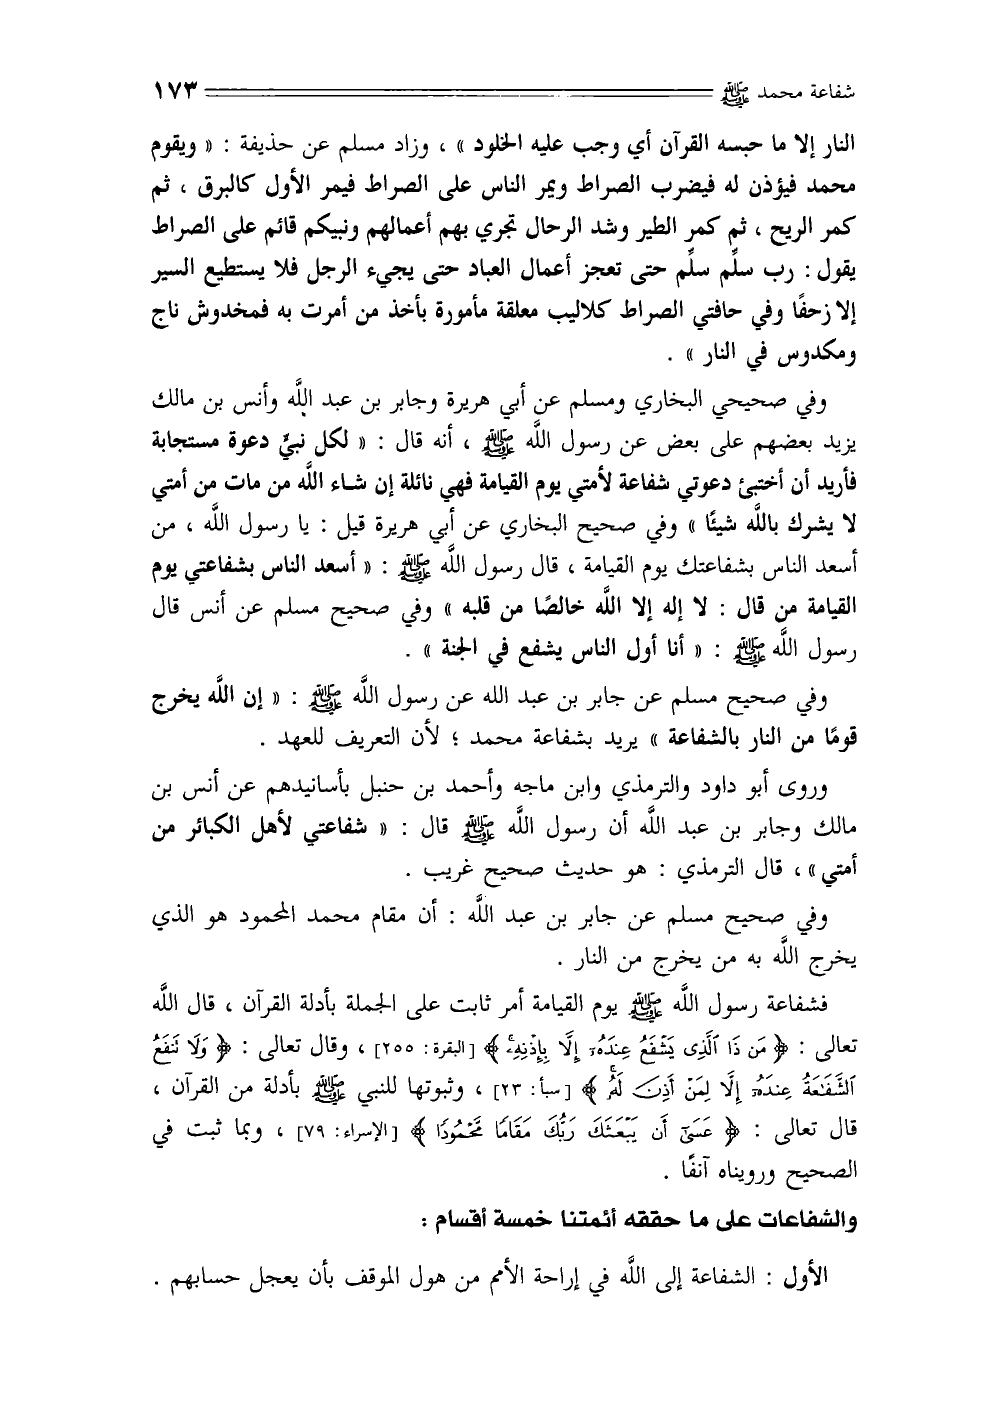 شفاعة محمد ﷺ ١٧٣
النار إلا ما حبسه القرآن أي وجب عليه الخلود » ، وزاد مسلم عن حذيفة : « ويقوم
محمد فيؤذن له فيضرب الصراط ويمر الناس على الصراط فيمر الأول كالبرق ، ثم
كمر الريح ، ثم كمر الطير وشد الرحال تجري بهم أعمالهم ونبيكم قائم على الصراط
يقول : رب سلِّم سلِّم حتى تعجز أعمال العباد حتى يجيء الرجل فلا يستطيع السير
إلا زحفًا وفي حافتي الصراط كلاليب معلقة مأمورة بأخذ من أمرت به فمخدوش ناج
ومكدوس في النار » .
وفي صحيحي البخاري ومسلم عن أبي هريرة وجابر بن عبد اللَّه وأنس بن مالك
يزيد بعضهم على بعض عن رسول اللَّه ﷺ ، أنه قال : « لكل نبيٍّ دعوة مستجابة
فأريد أن أختبئ دعوتي شفاعة لأمتي يوم القيامة فهي نائلة إن شاء اللَّه من مات من أمتي
لا يشرك باللَّه شيئًا » وفي صحيح البخاري عن أبي هريرة قيل : يا رسول اللَّه ، من
أسعد الناس بشفاعتك يوم القيامة ، قال رسول اللَّه ﷺ : « أسعد الناس بشفاعتي يوم
القيامة من قال : لا إله إلا اللَّه خالصًا من قلبه » وفي صحيح مسلم عن أنس قال
رسول اللَّه ﷺ : « أنا أول الناس يشفع في الجنة » .
وفي صحيح مسلم عن جابر بن عبد الله عن رسول اللَّه ﷺ : « إن اللَّه يخرج
قومًا من النار بالشفاعة » يريد بشفاعة محمد ؛ لأن التعريف للعهد .
وروى أبو داود والترمذي وابن ماجه وأحمد بن حنبل بأسانيدهم عن أنس بن
مالك وجابر بن عبد اللَّه أن رسول اللَّه ﷺ قال : « شفاعتي لأهل الكبائر من
أمتي » ، قال الترمذي : هو حديث صحيح غريب .
وفي صحيح مسلم عن جابر بن عبد اللَّه : أن مقام محمد المحمود هو الذي
يخرج اللَّه به من يخرج من النار .
فشفاعة رسول اللَّه ﷺ يوم القيامة أمر ثابت على الجملة بأدلة القرآن ، قال اللَّه
تعالى : ﴿ مَن ذَا ٱلَّذِى يَشْفَعُ عِندَهُۥٓ إِلَّا بِإِذْنِهِۦ ﴾ [البقرة: ٢٥٥] ، وقال تعالى : ﴿ وَلَا نَنفَعُ
ٱلشَّفَٰعَةُ عِندَهُۥٓ إِلَّا لِمَنْ أَذِنَ لَهُۥ ﴾ [سبأ: ٢٣] ، وثبوتها للنبي ﷺ بأدلة من القرآن ،
قال تعالى : ﴿ عَسَىٰٓ أَن يَبْعَثَكَ رَبُّكَ مَقَامًا مَّحْمُودًا ﴾ [الإسراء: ٧٩] ، وبما ثبت في
الصحيح ورويناه آنفًا .
والشفاعات على ما حققه أئمتنا خمسة أقسام :
الأول : الشفاعة إلى اللَّه في إراحة الأمم من هول الموقف بأن يعجل حسابهم .